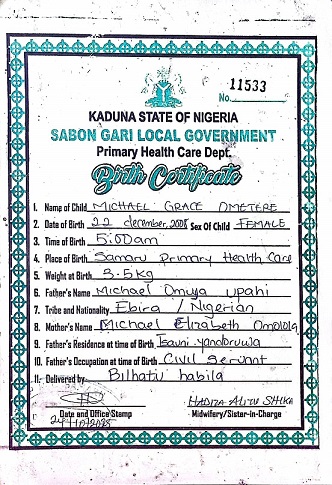 No. 11533
KADUNA STATE OF NIGERIA
SABON GARI LOCAL GOVERNMENT
Primary Health Care Dept.
Birth Certificate
1. Name of Child MICHAEL GRACE OMETERE
2. Date of Birth 22 december, 2008 Sex Of Child FEMALE
3. Time of Birth 5:00am
4. Place of Birth Samaru Primary Health Care
5. Weight at Birth 3.5kg
6. Father's Name Michael Omuya upahi
7. Tribe and Nationality Ebira / Nigerian
8. Mother's Name Michael Elizabeth Omolola
9. Father's Residence at time of Birth yanabruwa
10. Father's Occupation at time of Birth Civil servant
11. Delivered by Bilhatu habila
HADIZA ALIYU SHIKA
Date and Office Stamp Midwifery/Sister-in-Charge